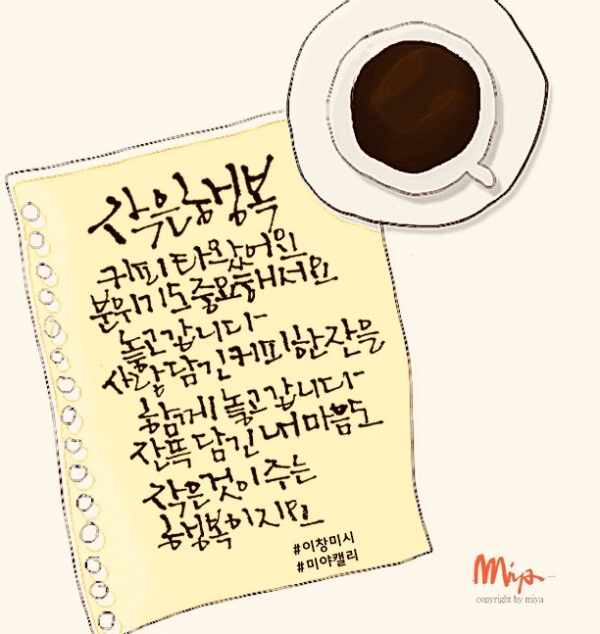 작은행복
커피타왔어요
분위기도중요해서요
놓고갑니다~
사랑담긴커피한잔을
함께놓고갑니다~
잔뜩담긴내마음도
작은것이주는
행복이지요
#이창미시
#미야캘리
Miya
copyright by miya